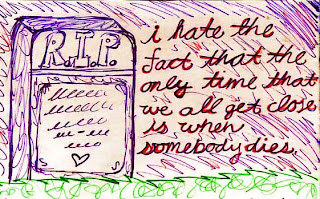 R.I.P.
i hate the
fact that the
only time that
we all get close
is when
somebody dies.